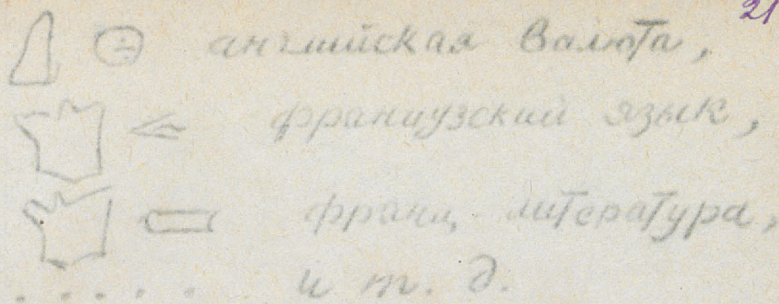 21
английская валюта,
французский язык,
франц. литература,
и т. д.